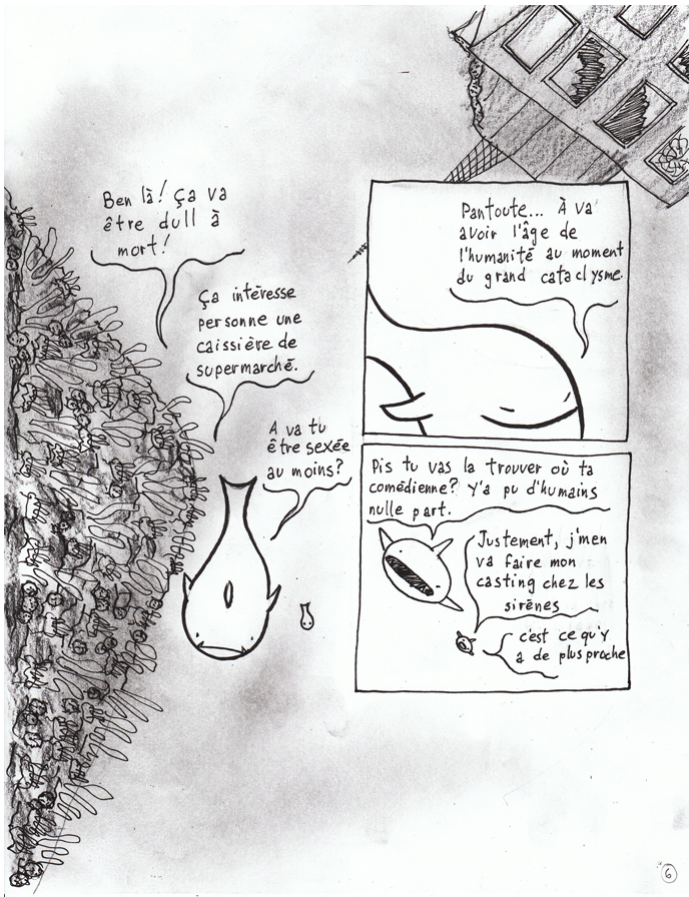 Ben là! Ça va
être dull à
mort!
Ça intéresse
personne une
caissière de
supermarché.
A va tu
être sexée
au moins?
Pantoute... À va
avoir l'âge de
l'humanité au moment
du grand cataclysme.
Pis tu vas la trouver où ta
comédienne? Y'a pu d'humains
nulle part.
Justement, j'men
va faire mon
casting chez les
sirènes
c'est ce qu'y
a de plus proche
6